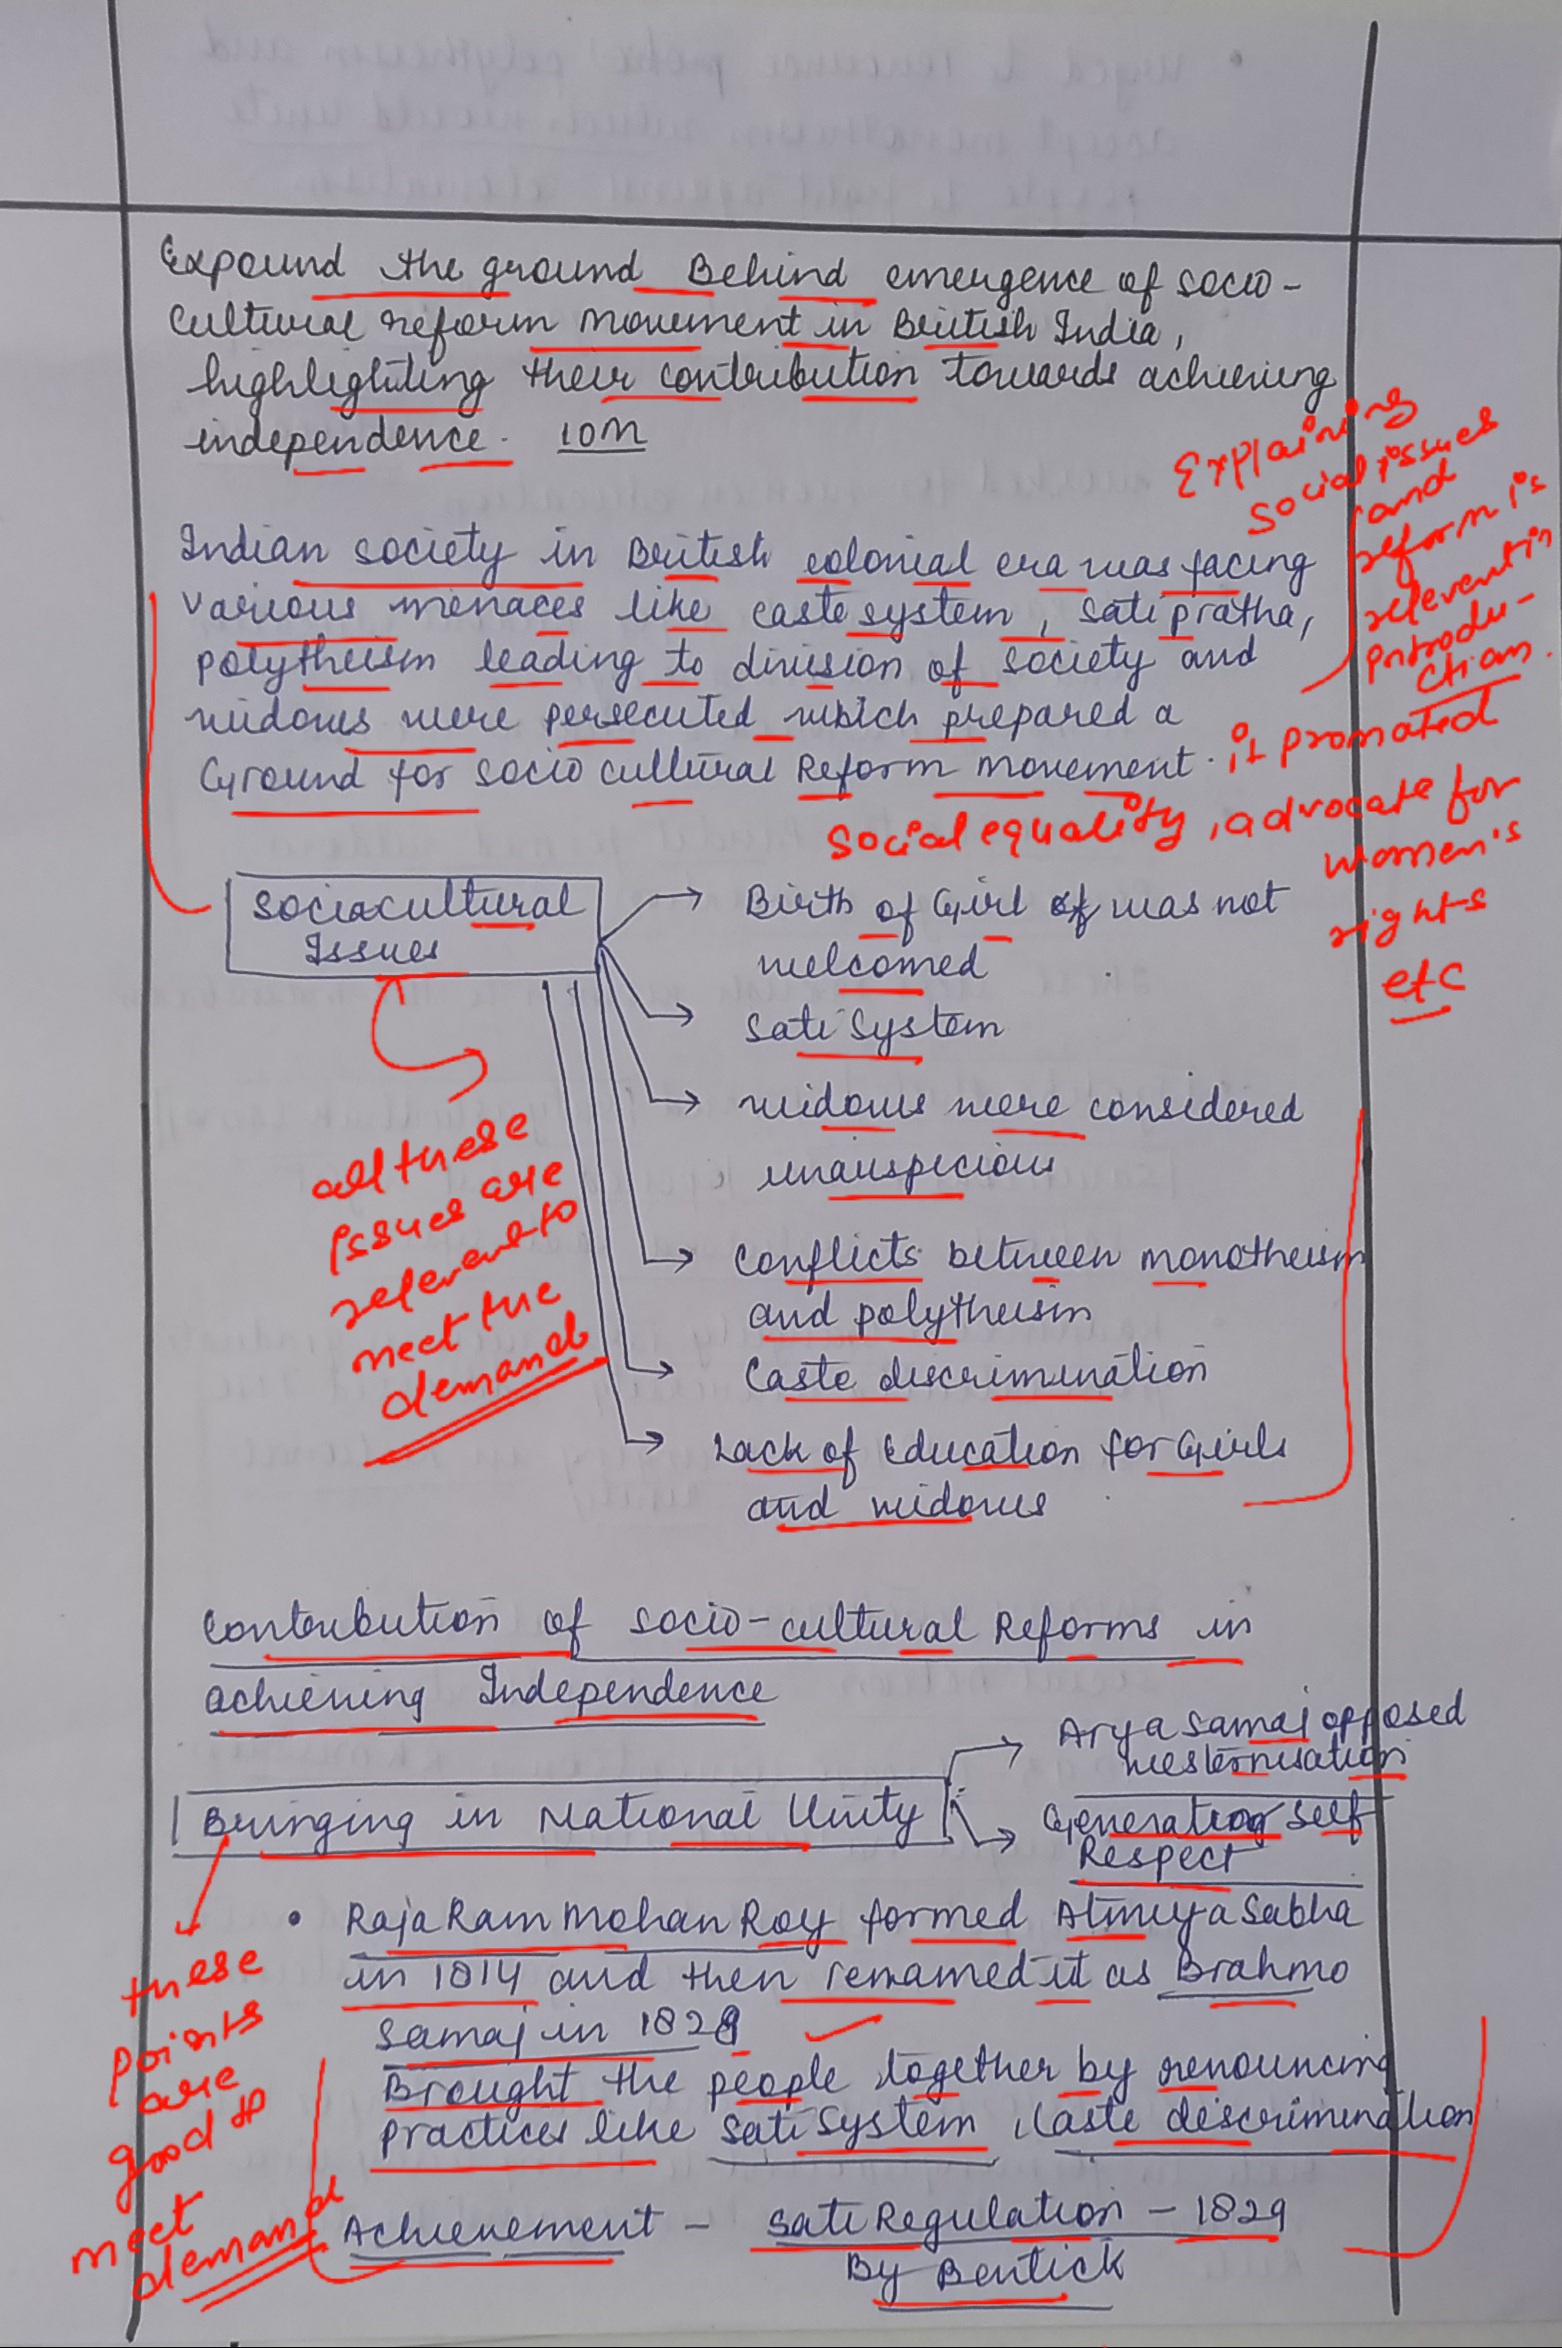 Expound the ground Behind emergence of socio-
cultural reform movement in British India,
highlighting their contribution towards achieving
independence. 10M
Explaining
social issues
and
reform is
relevent in
introdu-
ction.
Indian society in British colonial era was facing
various menaces like caste system, sati pratha,
polytheism leading to division of society and
widows were persecuted which prepared a
Ground for socio cultural Reform movement.
it promoted
social equality, advocate for
women's
rights
etc
Sociocultural
Issues
Birth of Girl was not
welcomed
Sati System
widows were considered
unauspicious
Conflicts between monotheism
and polytheism
Caste discrimination
Lack of Education for Girls
and widows
all these
issues are
relevent to
meet the
demand
Contribution of socio-cultural Reforms in
achieving Independence
Bringing in National Unity
Arya Samaj opposed
westernisation
Generating Self
Respect
• Raja Ram Mohan Roy formed Atmiya Sabha
in 1814 and then renamed it as Brahmo
Samaj in 1828
Brought the people together by renouncing
practices like Sati System, Caste discrimination
Achievement - Sati Regulation - 1829
By Bentick
these
points
are
good to
meet
demand